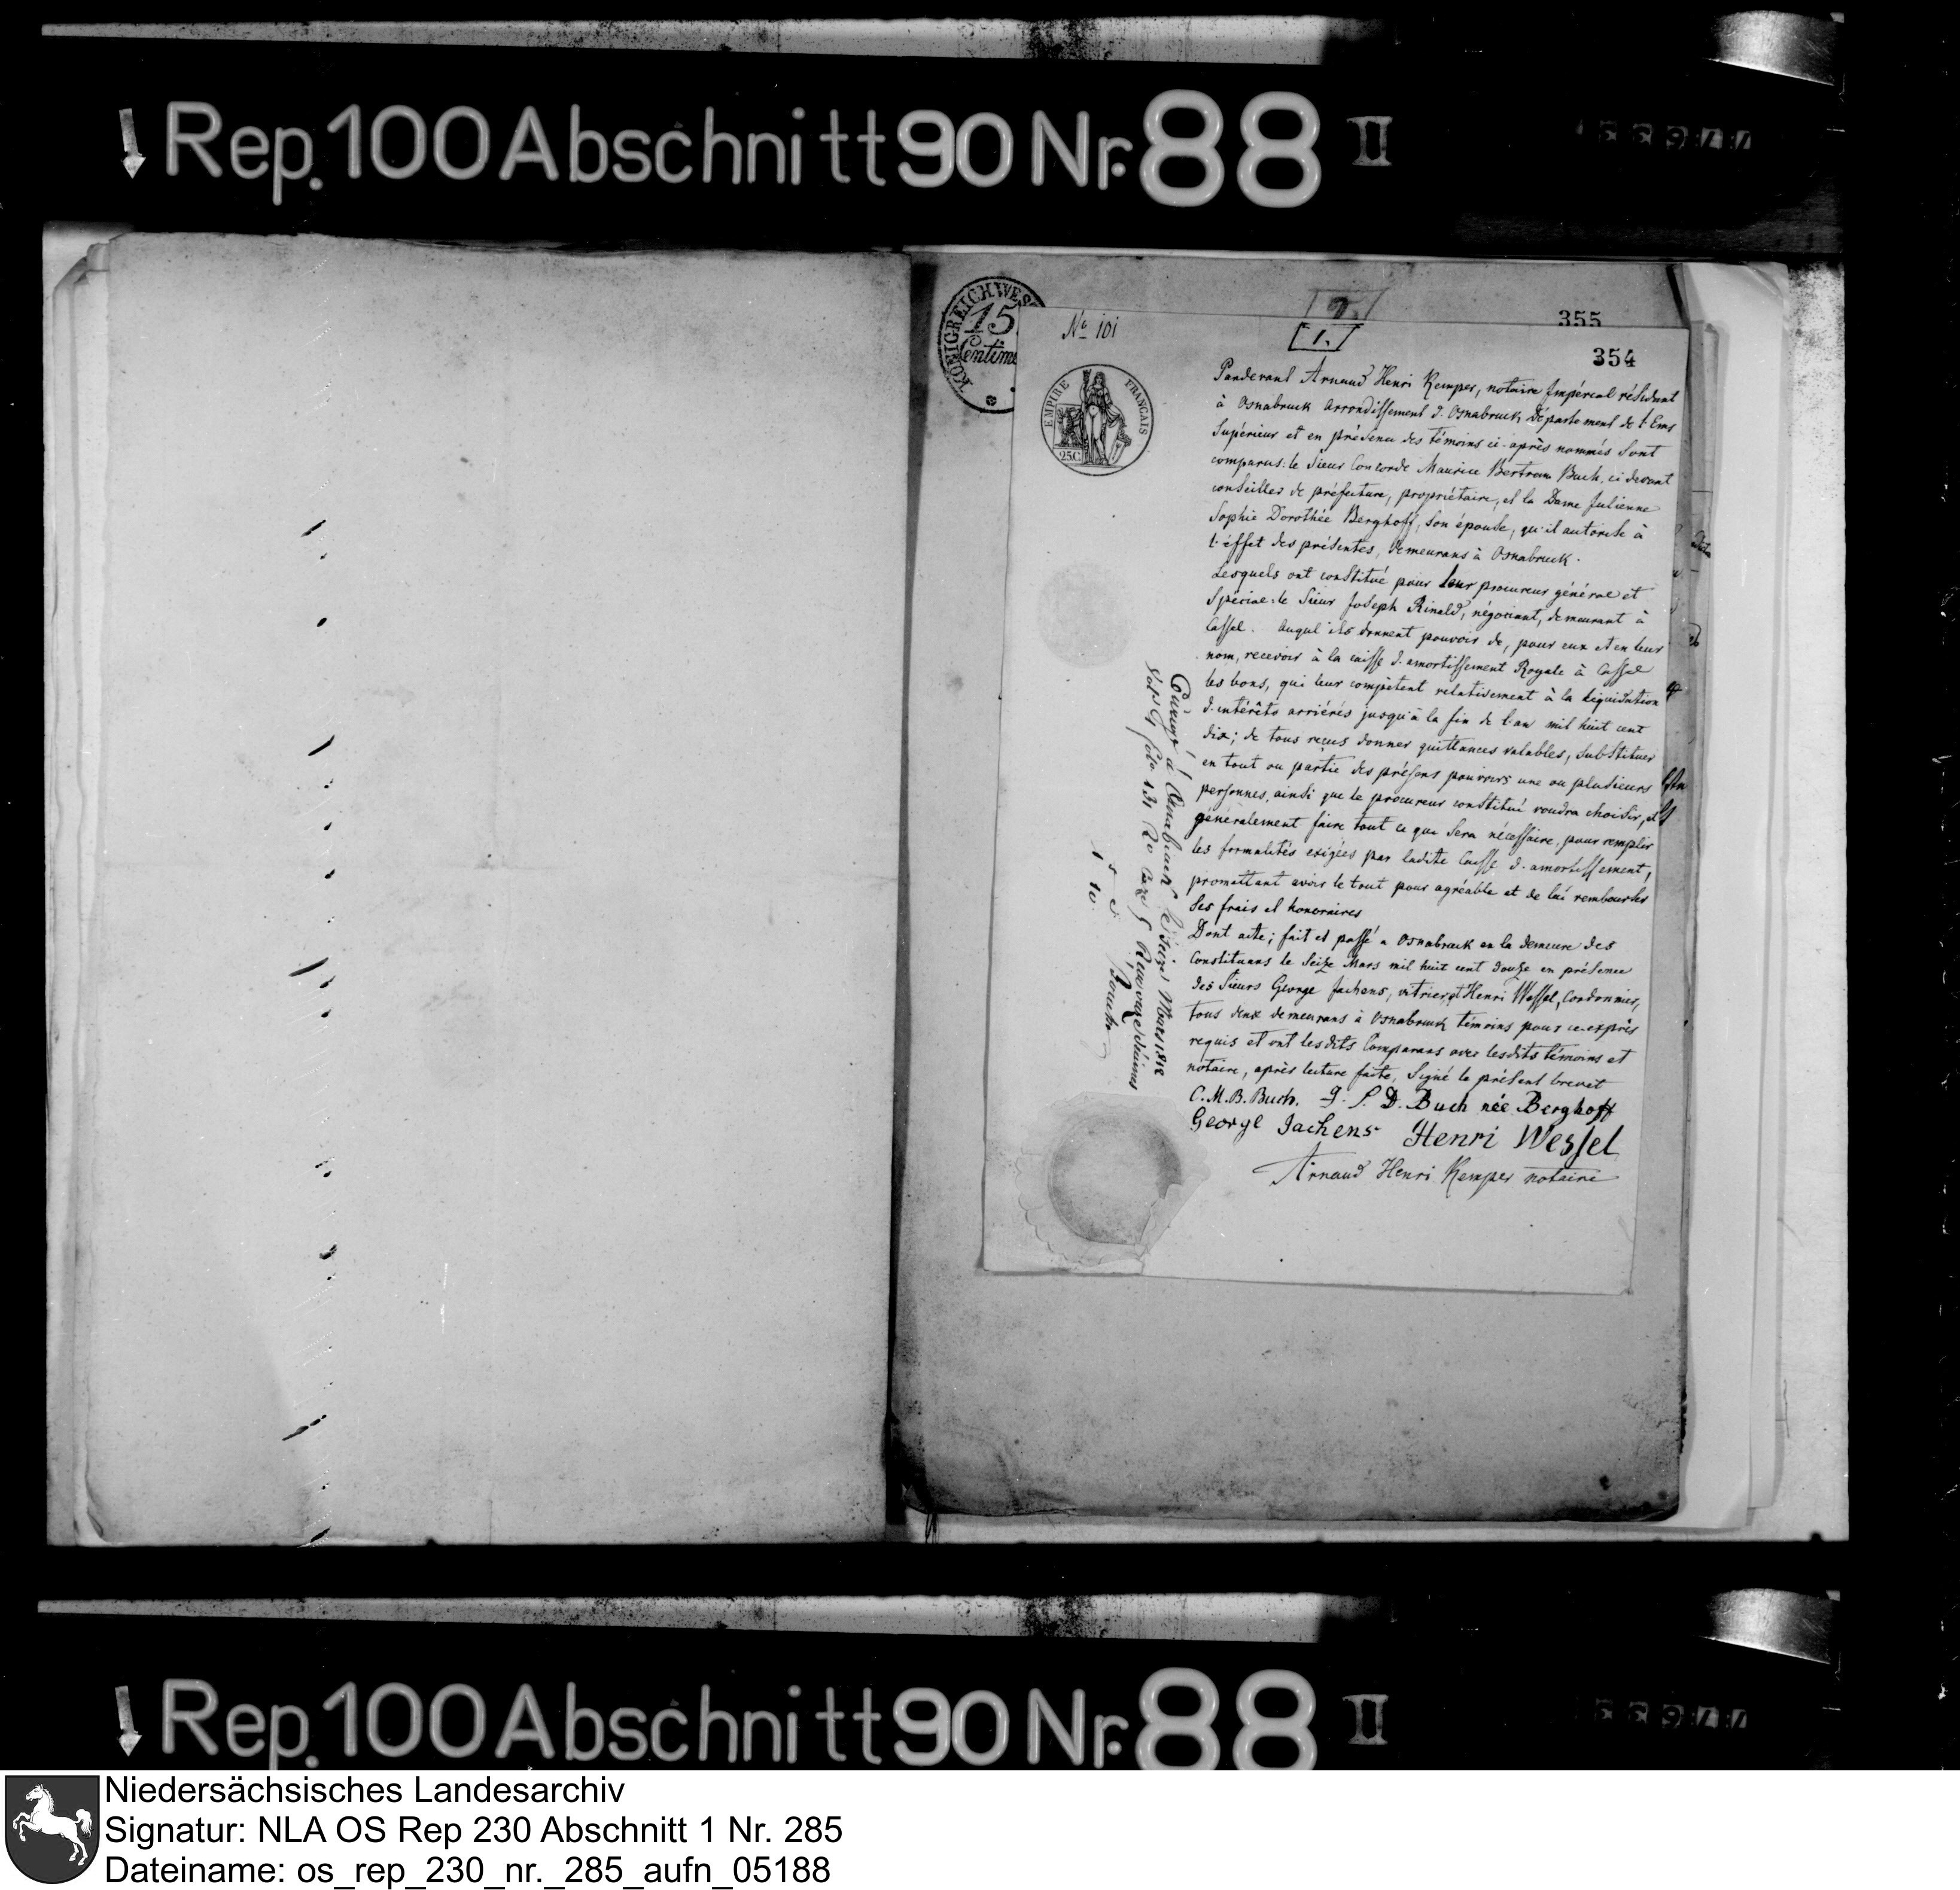 Rep. 100 Abschnitt 90 Nr. 88 II
KÖNIGREICH WES
15
Centime
355
No 101
[1.]
354
EMPIRE FRANÇAIS
25C
Pardevant Arnaud Henri Kemper, notaire Impérial résidant
à Osnabruck arrondissement d'Osnabruck, Département de l'Ems
Supérieur et en présence des témoins ci-après nommés sont
comparus: le Sieur Concorde Maurice Bertram Buch, ci devant
conseiller de préfecture, propriétaire, et la Dame Julienne
Sophie Dorothée Berghoff, son épouse, qu'il autorise à
l'éffet des présentes, demeurans à Osnabruck.
Lesquels ont constitué pour leur procureur général et
Spécial: le Sieur Joseph Rinald, négociant, demeurant à
Cassel. Auquel ils donnent pouvoir de, pour eux et en leur
nom, recevoir à la caisse d'amortissement Royale à Cassel
les bons, qui leur compètent relativement à la liquidation
d'intérêts arriérés jusqu'à la fin de l'an mil huit cent
dix; de tous reçus donner quittances valables, substituer
en tout ou partie des présens pouvoirs une ou plusieurs
personnes, ainsi que le procureur constitué voudra choisir, et
généralement faire tout ce que sera nécessaire, pour remplir
les formalités exigées par ladite Caisse d'amortissement,
promettant avoir le tout pour agréable et de lui rembourser
ses frais et honoraires
Dont acte; fait et passé a Osnabruck en la demeure des
Constituans le seize Mars mil huit cent douze en présence
des Sieurs George Jachens, vitrier, et Henri Wessel, Cordonnier,
tous deux demeurans à Osnabruck témoins pour ce exprès
requis et ont lesdits Comparans avec lesdits témoins et
notaire, après lecture faite, signé le présent brevet
C. M. B. Buch. J. S. D. Buch née Berghoff
George Jachens Henri Wessel
Arnaud Henri Kemper notaire
à Osnabruck le Seize Mars 1812
fol. 131
Rep. 100 Abschnitt 90 Nr. 88 II
Niedersächsisches Landesarchiv
Signatur: NLA OS Rep 230 Abschnitt 1 Nr. 285
Dateiname: os_rep_230_nr._285_aufn_05188